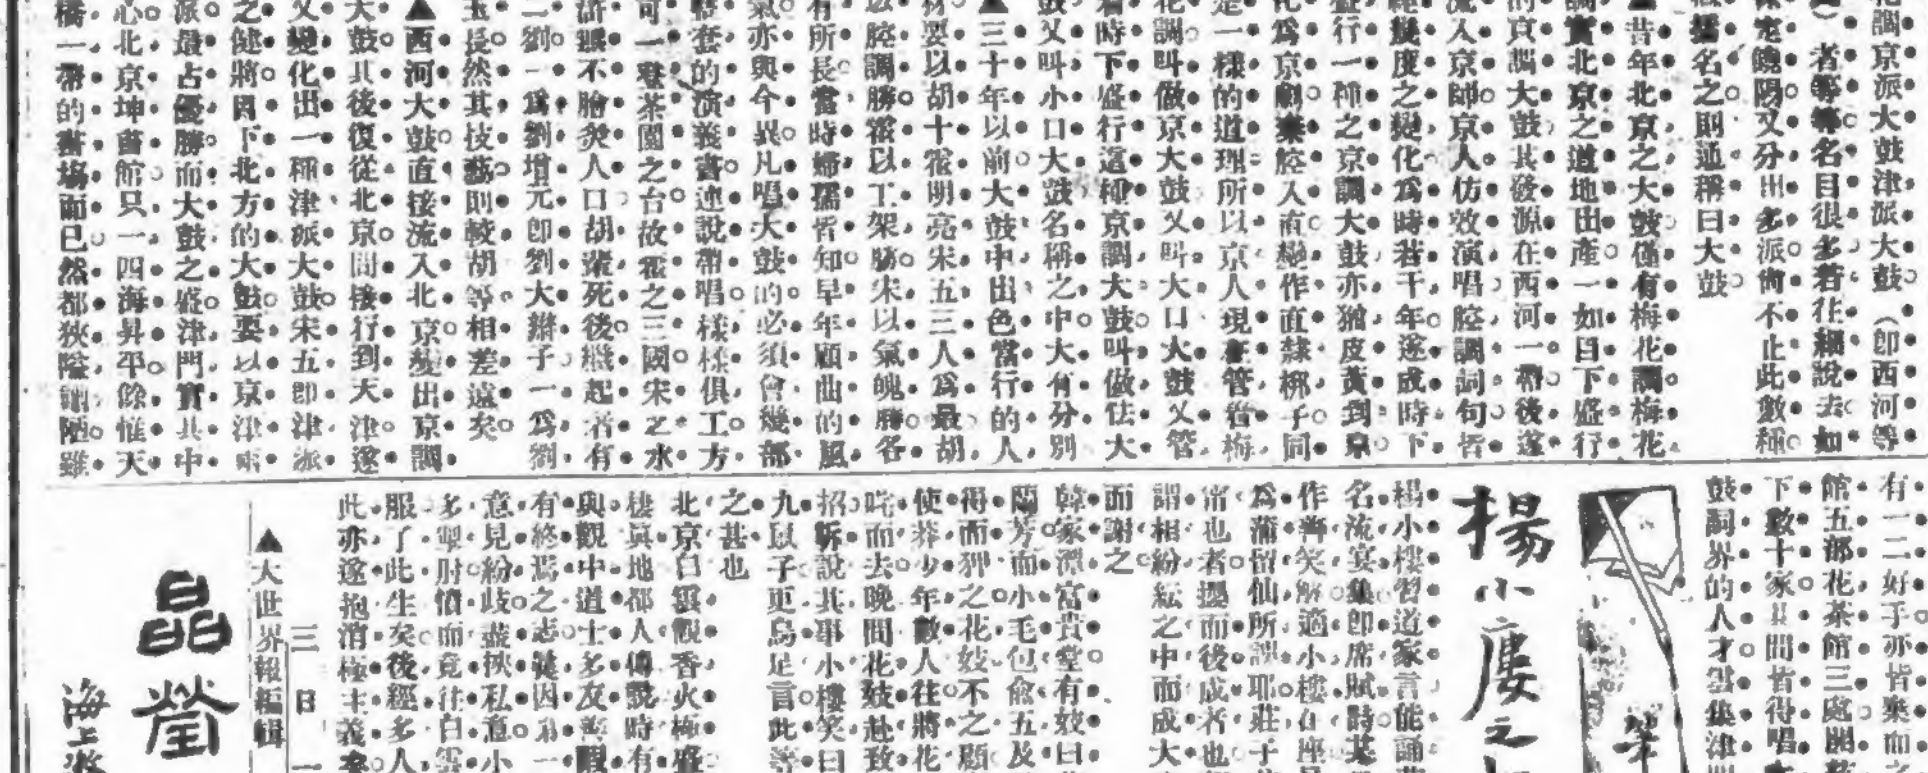 花調京派大鼓津派大鼓（卽西河等
）者等等名目很多若往細說去如
又分出多派尙不止此數種
名之則通稱曰大鼓
▲昔年北京之大鼓僅有梅花調梅花
調實北京之道地出產一如目下盛行
的京調大鼓其發源在西河一帶後遂
流入京師京人仿效演唱腔調詞句皆
經幾度之變化爲時若干年遂成時下
盛行一種之京調大鼓亦猶皮黃到京
化爲京劇秦腔入直變作直隸梆子同
是一樣的道理所以京人現在管着梅
花調叫做京大鼓又叫大口大鼓又管
着時下盛行這種京調大鼓叫做怯大
鼓又叫小口大鼓名稱之中大有分別
▲三十年以前大鼓中出色當行的人
材要以胡十霍明亮宋五三人爲最胡
以腔調勝霍以工架勝宋以氣魄勝各
有所長當時婦孺皆知早年顧曲的風
氣亦與今異凡唱大鼓的必須會幾部
整套的演義書連說帶唱樣樣俱工方
可一登茶園之台故霍之三國宋之水
滸無不膾炙人口胡霍死後繼起者有
二劉一爲劉增元卽劉大辮子一爲劉
玉長然其技藝則較胡等相差遠矣
▲西河大鼓直接流入北京變出京調
大鼓其後復從北京間接行到天津遂
又變化出一種津派大鼓宋五卽津派
之健將目下北方的大鼓要以京津兩
派最占優勝而大鼓之盛津門實其中
心北京坤書館只一四海昇平餘惟天
橋一帶的書場而已然都狹隘謭陋雖
有一二好手亦皆樂而
館五部花茶館三處開
下數十家其間皆得唱
鼓詞界的人才雲集津
楊小樓之
楊小樓習道家言能誦
名流宴集卽席賦詩某
作謔笑解適小樓在座
爲蒲留仙所誤耶莊子
常也者遷而後成者也
謂相紛紜之中而成大
而謝之
韓家潭富貴堂有妓曰
蘭芳而小毛包俞五及
得而狎之花妓不之顧
使莽少年數人往將花
咤而去晚間花妓赴致
招訴說其事小樓笑曰
九以子更烏足言此等
之甚也
北京白雲觀香火極盛
棲眞地都人傳說時有
與觀中道士多友善
有終焉之志冀因
意見紛歧盡挾私意小
多掣肘憤而竟往白雲
服了此生矣後經多人
此亦遂抱消極主義
三日
▲大世界報編輯
晶瑩
海上